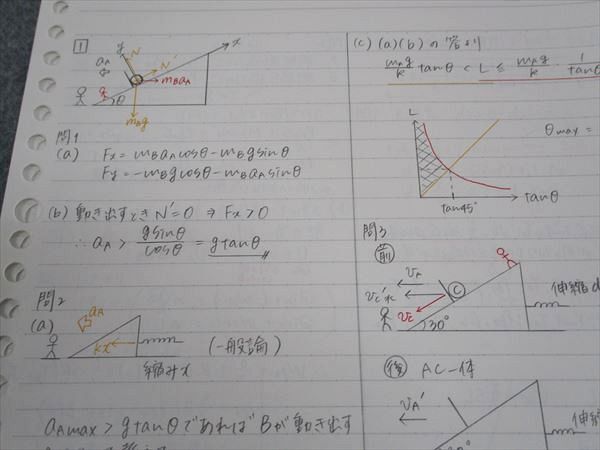 1
y
N
N'
x
aA
mBaA
θ
mBg
問1
(a) Fx = mBaAcosθ - mBgsinθ
Fy = -mBgcosθ - mBaAsinθ
(b) 動き出すとき N'=0 ⇒ Fx>0
∴ aA > gsinθ/cosθ = gtanθ
問2
(a)
aA
kx
(一般論)
縮みx
aAmax > gtanθ であれば Bが動き出す
(c) (a)(b)の答より
mAg/k tanθ < L ≦ mAg/k · 1/tanθ
L
θmax =
tanθ
tan45°
問3
前
vA
C
vC'x
vC
30°
伸縮d
後 AC一体
vA'
伸縮